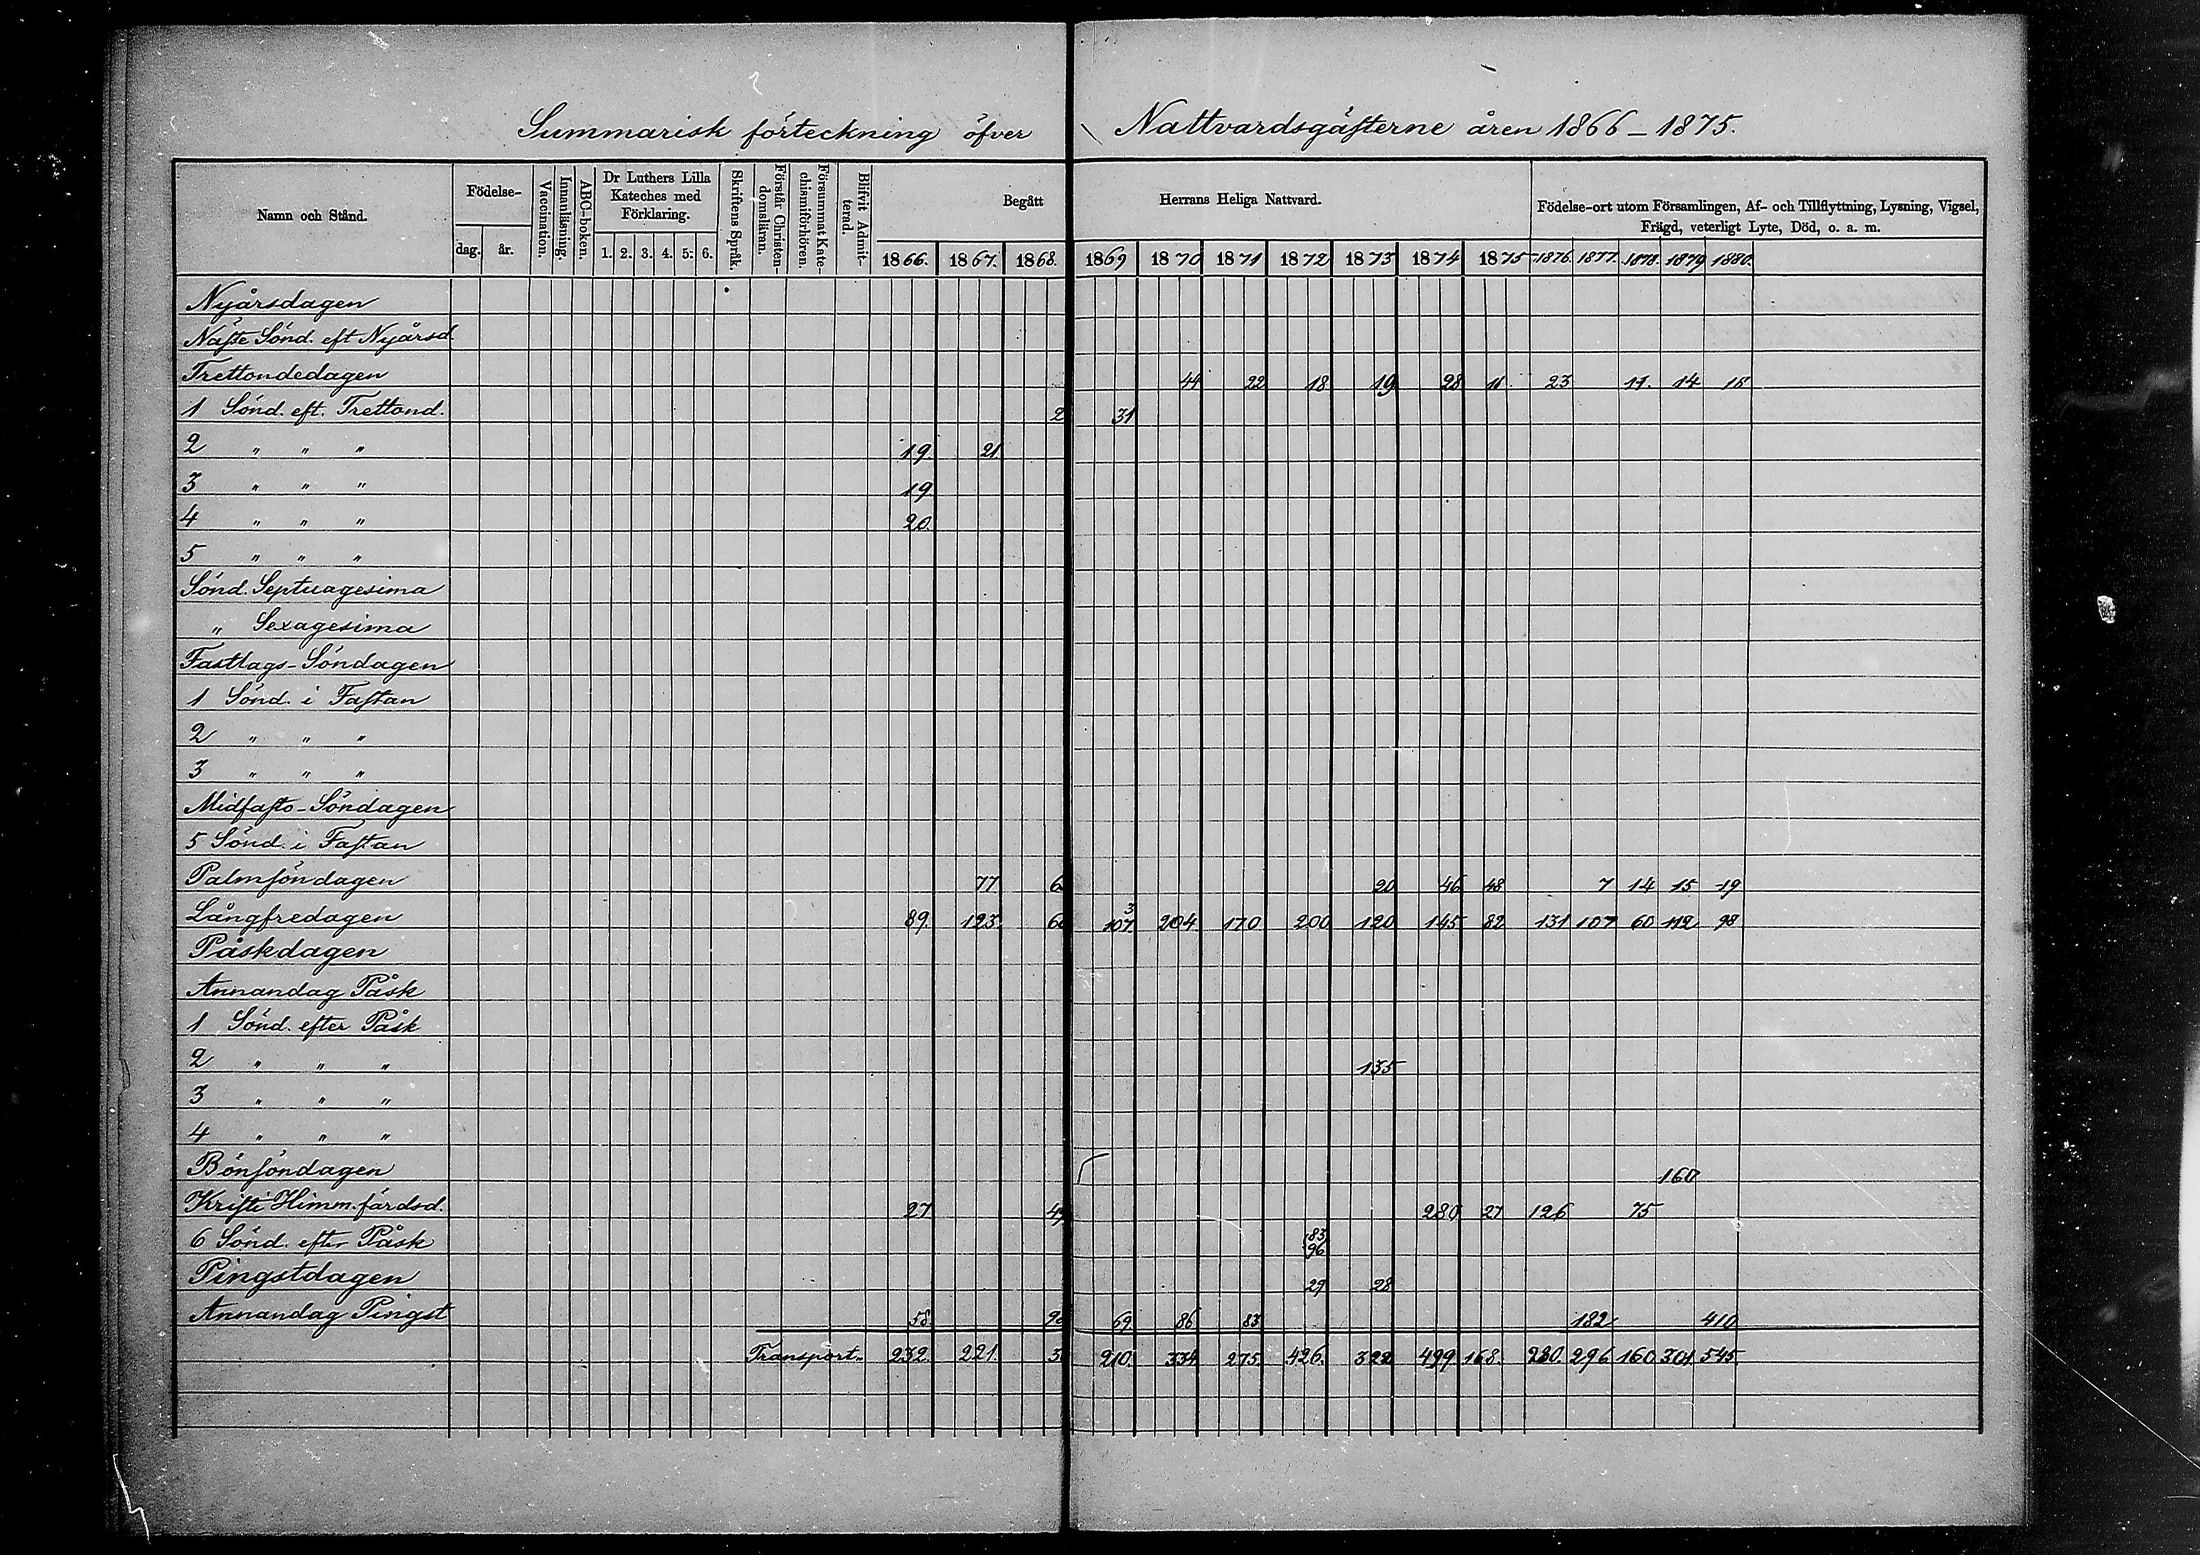 Summarisk förteckning öfver Nattvardsgästerne åren 1866–1875.
Namn och Stånd. Födelse- dag. år. Vaccination. Innanläsning. ABC-boken. Dr Luthers Lilla Kateches med Förklaring. 1. 2. 3. 4. 5. 6. Skriftens Språk. Förstår Christendomsläran. Försummat Katechismiförhören. Blifvit Admitterad. Begått Herrans Heliga Nattvard. Födelse-ort utom Församlingen, Af- och Tillflyttning, Lysning, Vigsel,
Frägd, veterligt Lyte, Död, o. a. m.
1866. 1867. 1868. 1869 1870 1871 1872 1873 1874 1875 1876. 1877. 1878. 1879 1880.
Nyårsdagen
Näste Sönd. eft Nyårsd.
Trettondedagen 44 22 18 19 28 11 23 11. 14 15
1 Sönd. eft. Trettond. 2 31
2 " " " 19. 21.
3 " " " 19
4 " " " 20.
5 " " "
Sönd. Septuagesima
" Sexagesima
Fastlags-Söndagen
1 Sönd. i Fastan
2 " " "
3 " " "
Midfasto-Söndagen
5 Sönd. i Fastan
Palmsöndagen 77. 6 20 46 48 7 14 15 19
Långfredagen 89. 123. 60 3 107. 204 170 200 120 145 82 131 107 60 112 98
Påskdagen
Annandag Påsk
1 Sönd. efter Påsk
2 " " " 135
3 " " "
4 " " "
Bönsöndagen 160
Kristi Himm.färdsd. 27 4 280 27 126 75
6 Sönd. efter Påsk 83 96
Pingstdagen 29 28
Annandag Pingst 58 9 69. 86 83 182 410
Transport.. 232. 221. 3 210. 334 275. 426. 322 499 168. 280. 296 160 301 545.